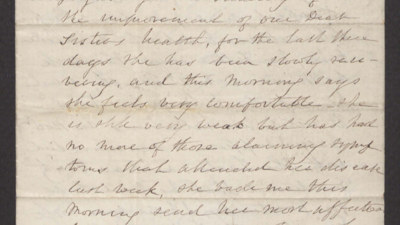 the improvement of our Dear
Sisters health, for the last three
days she has been slowly reco-
vering, and this morning says
she feels very comfortable. she
is still very weak but has had
no more of those alarming symp
toms that attended her disease
last week, she bade me this
morning send her most affection